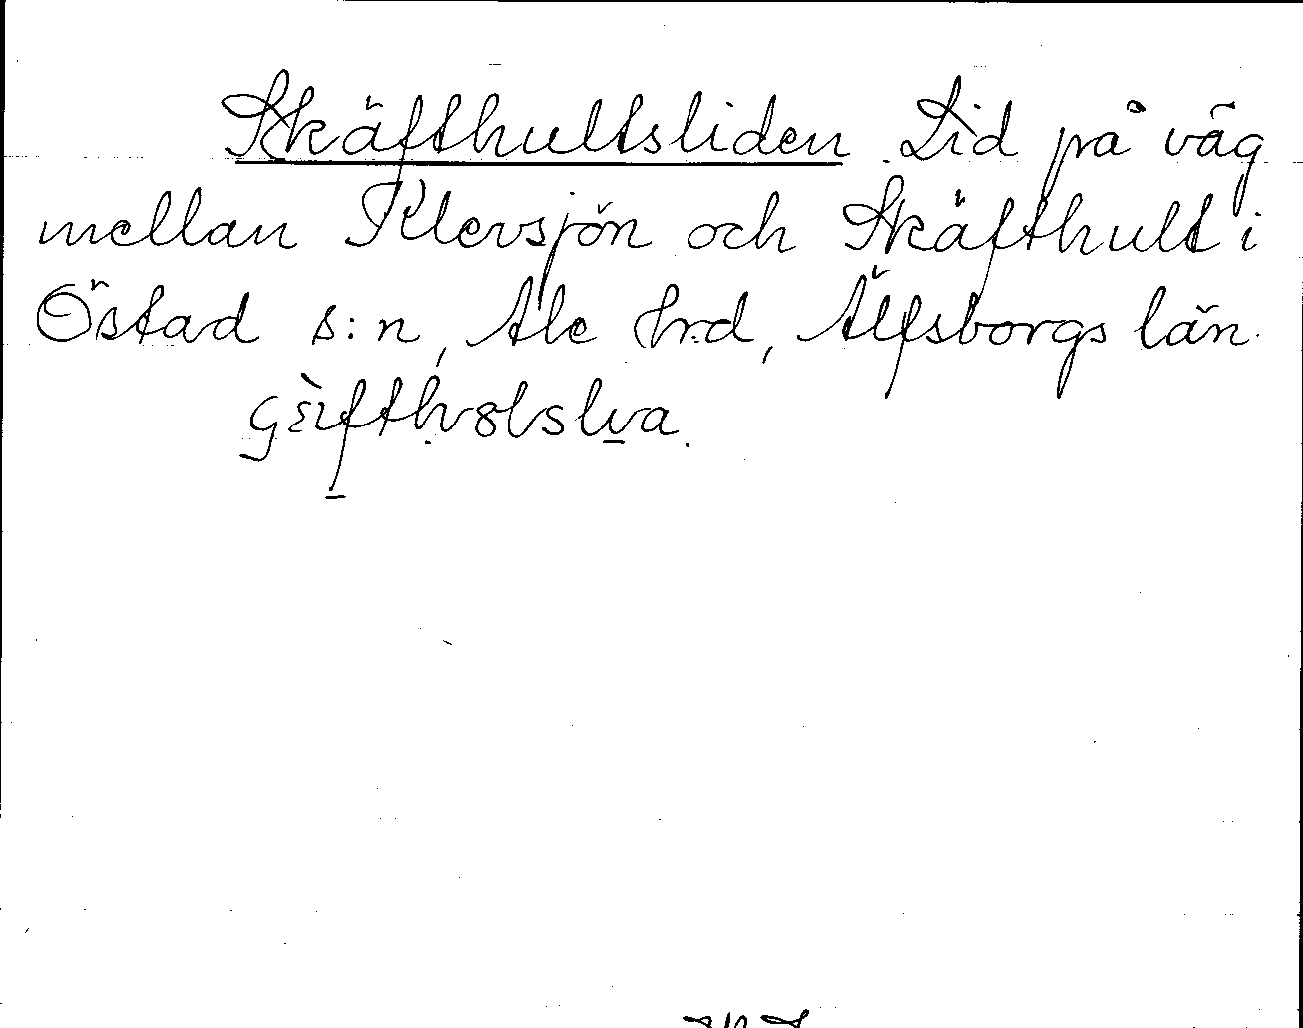 Skäfthultsliden. Lid på väg
mellan Klevsjön och Skäfthult i
Östad s:n, Ale hrd, Älfsborgs län.